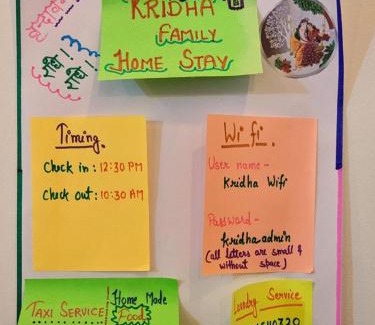 KRIDHA
FAMILY
HOME STAY
Timing.
Check in : 12:30 PM
Check out : 10:30 AM
Wi fi.
User name -
Kridha Wifi
Password -
Kridhaadmin
(all letters are small &
without space)
TAXI SERVICE
Home Made
Food
Laundry Service